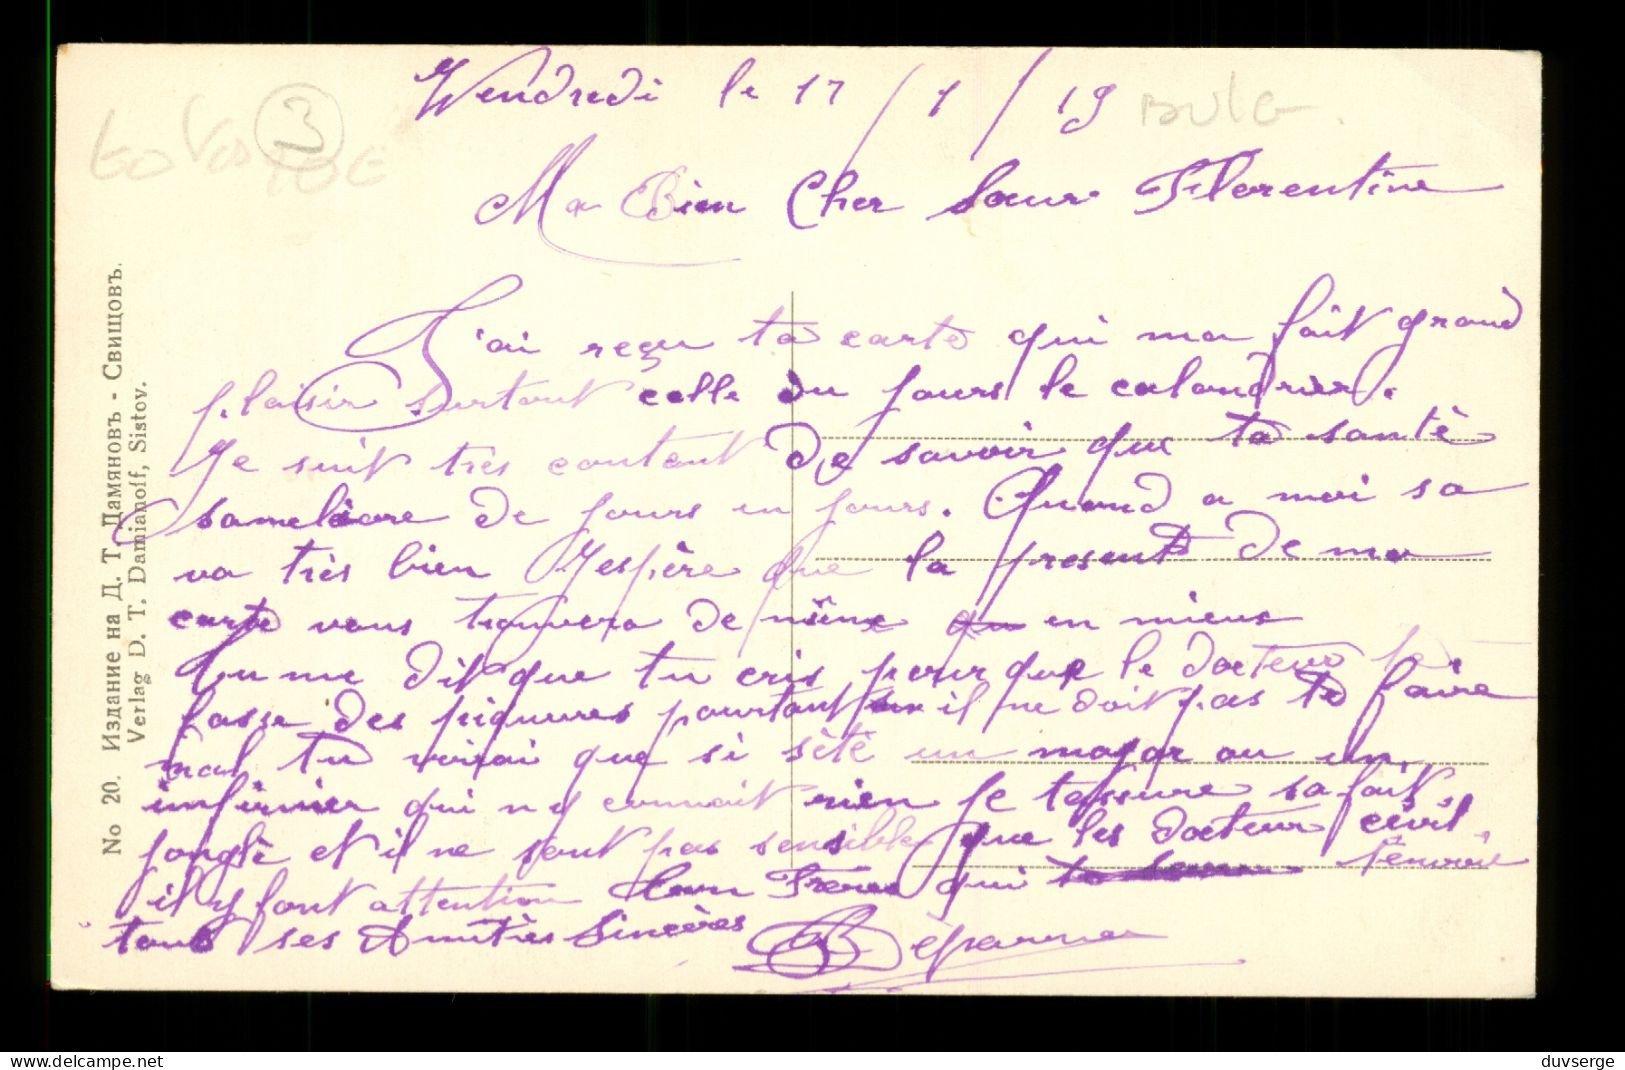 Vendredi le 17 / 1 / 19
BULG.
3
Ma Bien Cher Sœur Florentine
J'ai reçu ta carte qui ma fait grand
plaisir surtout celle du jours le calandrier.
Je suit très contant De savoir que ta santé
sameliore de jours en jours. Quand a moi sa
va très bien J'espère que la present De ma
carte vous trouvera de même en mieux
Tu me dit que tu cris pour que le docteur te
fasse des piqures pourtant il ne doit pas te faire
mal tu voirai que si sété un major ou un
infirmier qui n y connait rien je tassure sa fait
jonglé et il ne sont pas sensible que les docteur civil.
il y font attention Ton Frère qui t'envoie
tous ses Amitiès Sincères
No 20. Издание на Д. Т. Дамяновъ - Свищовъ.
Verlag D. T. Damianoff, Sistov.
delcampe.net
duvserge